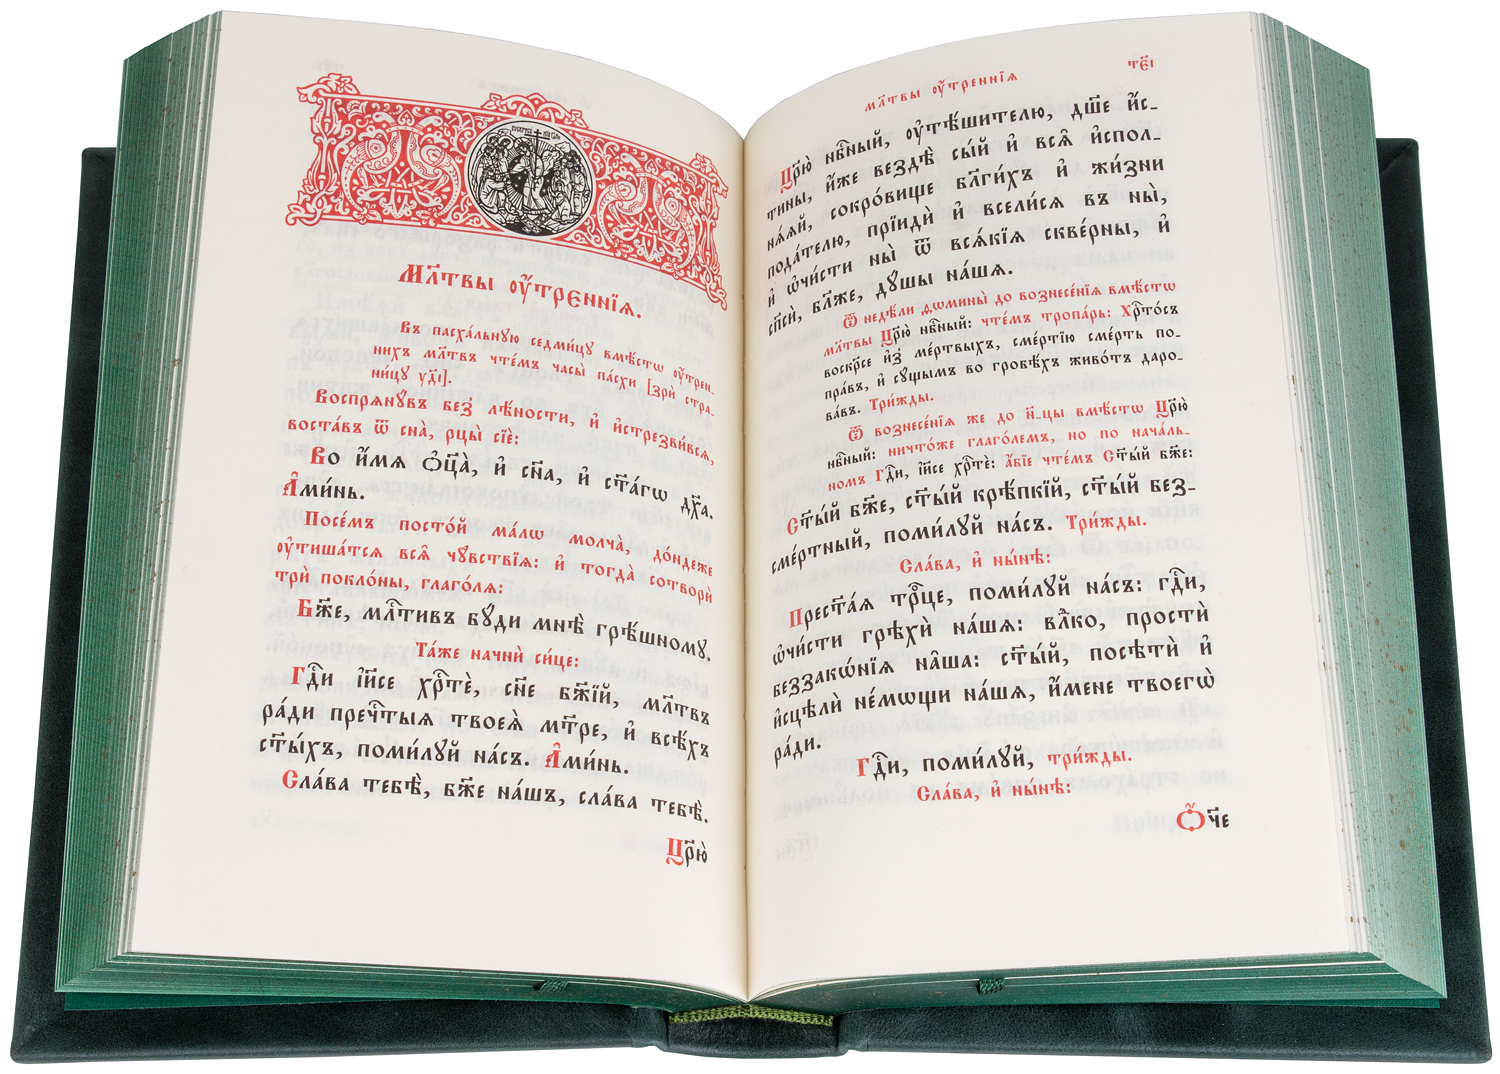 Мл҃твы ᲂу҆́треннїѧ.
Въ пасха́льную седми́цу вмѣ́стѡ ᲂу҆́трен-
нихъ мл҃твъ чте́мъ часы̀ па́схи [зрѝ стра-
ни́цу уд҃і].
Воспрѧнꙋ́въ без̾ лѣ́ности, и҆ и҆стрезви́всѧ,
воста́въ ѿ сна̀, рцы̀ сїѐ:
Во и҆́мѧ ѻ҆ц҃а̀, и҆ сн҃а, и҆ ст҃а́гѡ дх҃а.
А҆ми́нь.
Посе́мъ посто́й ма́лѡ молча̀, до́ндеже
ᲂу҆тиша́тсѧ всѧ̑ чꙋ́вствїѧ: и҆ тогда̀ сотворѝ
трѝ покло́ны, глаго́лѧ:
Бж҃е, млⷭ҇тивъ бꙋ́ди мнѣ̀ грѣ́шномꙋ.
Та́же начнѝ си́це:
Гдⷭ҇и і҆и҃се хрⷭ҇тѐ, сн҃е бж҃їй, мл҃твъ
ра́ди пречⷭ҇тыѧ твоеѧ̀ мт҃ре, и҆ всѣ́хъ
ст҃ы́хъ, поми́лꙋй на́съ. А҆ми́нь.
Сла́ва тебѣ̀, бж҃е на́шъ, сла́ва тебѣ̀.
Цр҃ю̀
мл҃твы ᲂу҆́треннїѧ
тє҃і
Цр҃ю̀ нбⷭ҇ный, ᲂу҆тѣ́шителю, дш҃е и҆́с-
тины, и҆́же вездѣ̀ сы́й и҆ всѧ̑ и҆спол-
нѧ́ѧй, сокро́вище бл҃ги́хъ и҆ жи́зни
пода́телю, прїидѝ и҆ всели́сѧ въ ны̀,
и҆ ѡ҆чи́сти ны̀ ѿ всѧ́кїѧ скве́рны, и҆
сп҃сѝ, бл҃же, дꙋ́шы на́шѧ.
Ѿ недѣ́ли ѳѡмины̀ до вознесе́нїѧ вмѣ́стѡ
мл҃твы Цр҃ю̀ нбⷭ҇ный: чте́мъ тропа́рь: Хрⷭ҇то́съ
воскр҃се и҆з̾ ме́ртвыхъ, сме́ртїю сме́рть по-
пра́въ, и҆ сꙋ́щымъ во гробѣ́хъ живо́тъ даро-
ва́въ. Три́жды.
Ѿ вознесе́нїѧ же до н҃-цы вмѣ́стѡ Цр҃ю̀
нбⷭ҇ный: ничто́же глаго́лемъ, но по нача́ль-
номъ Гдⷭ҇и, і҆и҃се хрⷭ҇тѐ: а҆́бїе чте́мъ Ст҃ы́й бж҃е:
Ст҃ы́й бж҃е, ст҃ы́й крѣ́пкїй, ст҃ы́й без-
сме́ртный, поми́лꙋй на́съ. Три́жды.
Сла́ва, и҆ ны́нѣ:
Прест҃а́ѧ трⷪ҇це, поми́лꙋй на́съ: гдⷭ҇и,
ѡ҆чи́сти грѣхѝ на́шѧ: влⷣко, простѝ
беззакѡ́нїѧ на̑ша: ст҃ы́й, посѣтѝ и҆
и҆сцѣлѝ не́мѡщи на́шѧ, и҆́мене твоегѡ̀
ра́ди.
Гдⷭ҇и, поми́лꙋй, три́жды.
Сла́ва, и҆ ны́нѣ:
Ѻ҆́ч҃е